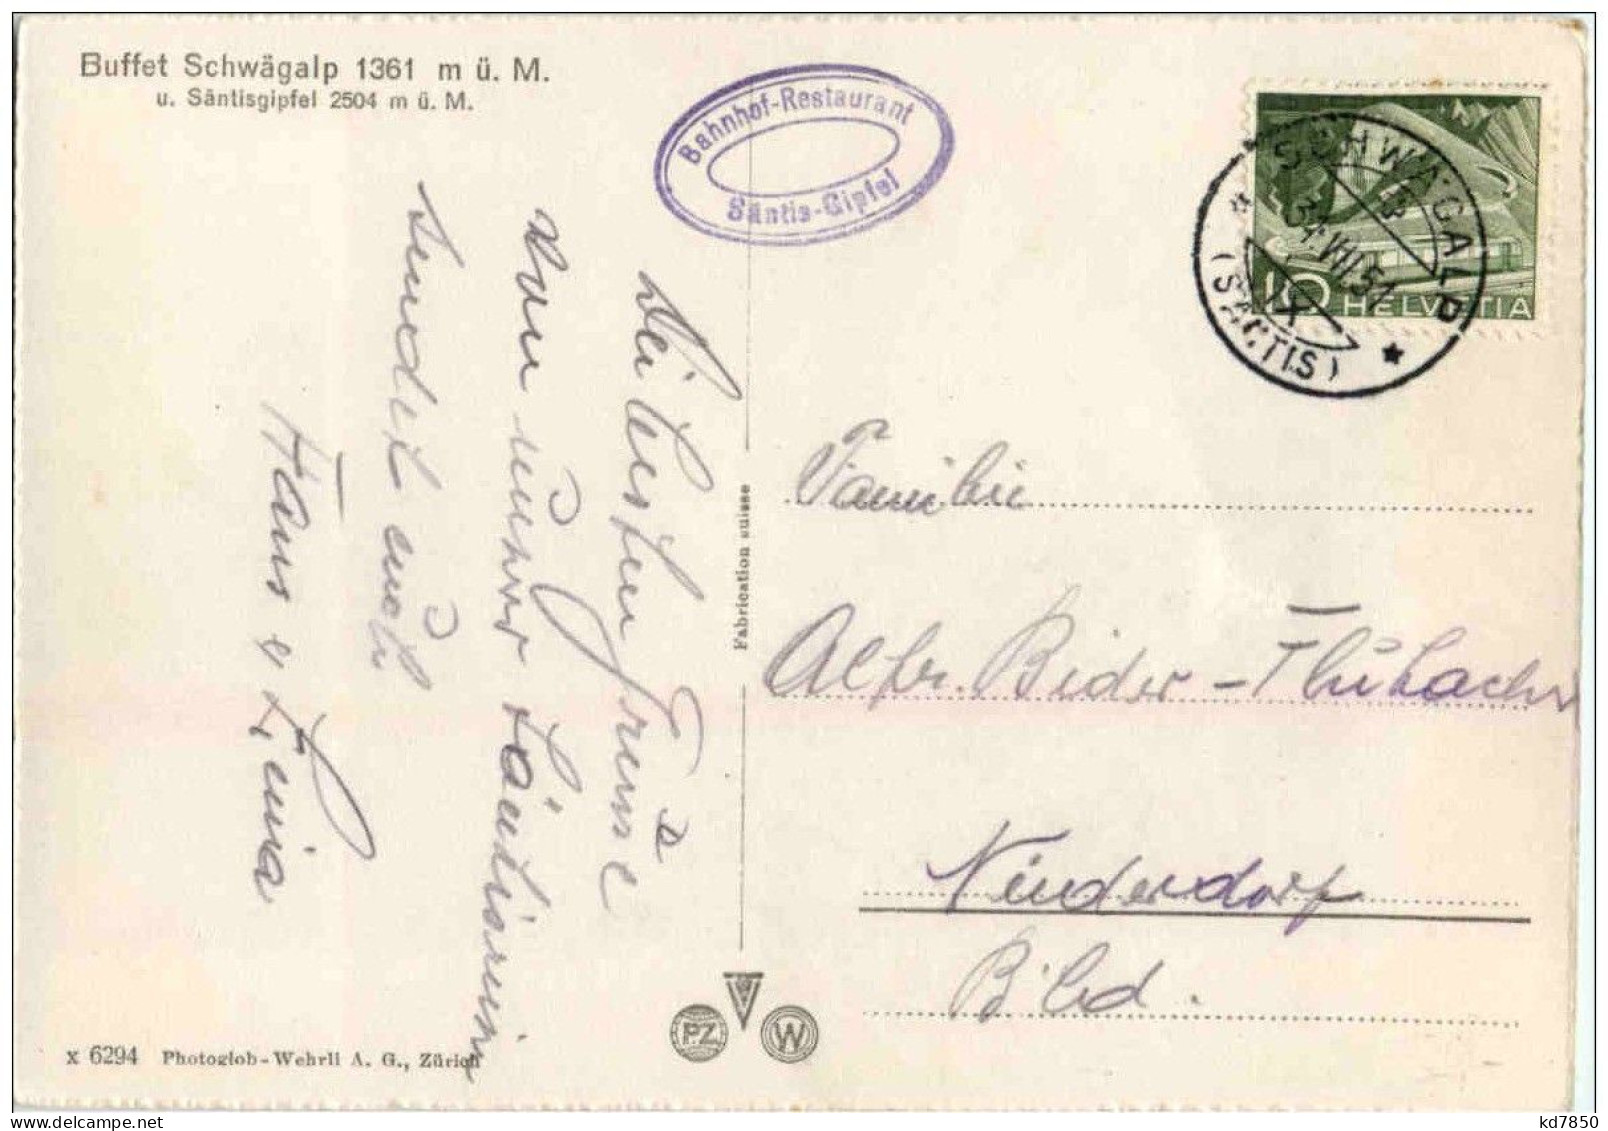 Buffet Schwägalp 1361 m ü. M.
u. Säntisgipfel 2504 m ü. M.
Bahnhof-Restaurant
Säntis-Gipfel
SCHWÄGALP
(SÄNTIS)
10 HELVETIA
Die besten Grüsse
von
sendet euch
Hans & Lina
Fabrication suisse
Familie
Alfr. Bider - Flubacher
Niederdorf
B'ld.
PZ
W
x 6294 Photoglob-Wehrli A. G., Zürich
www.delcampe.net
kd7850